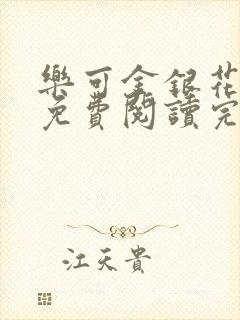 樂可金銀花
免費閱讀完
江天貴